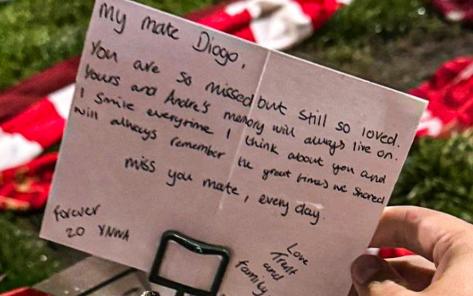 My mate Diogo,
You are so missed but still so loved.
Yours and Andre's memory will always live on.
I smile everytime I think about you and
will always remember the great times we shared
miss you mate, every day.
forever
20 YNWA
Love
Trent
and
family